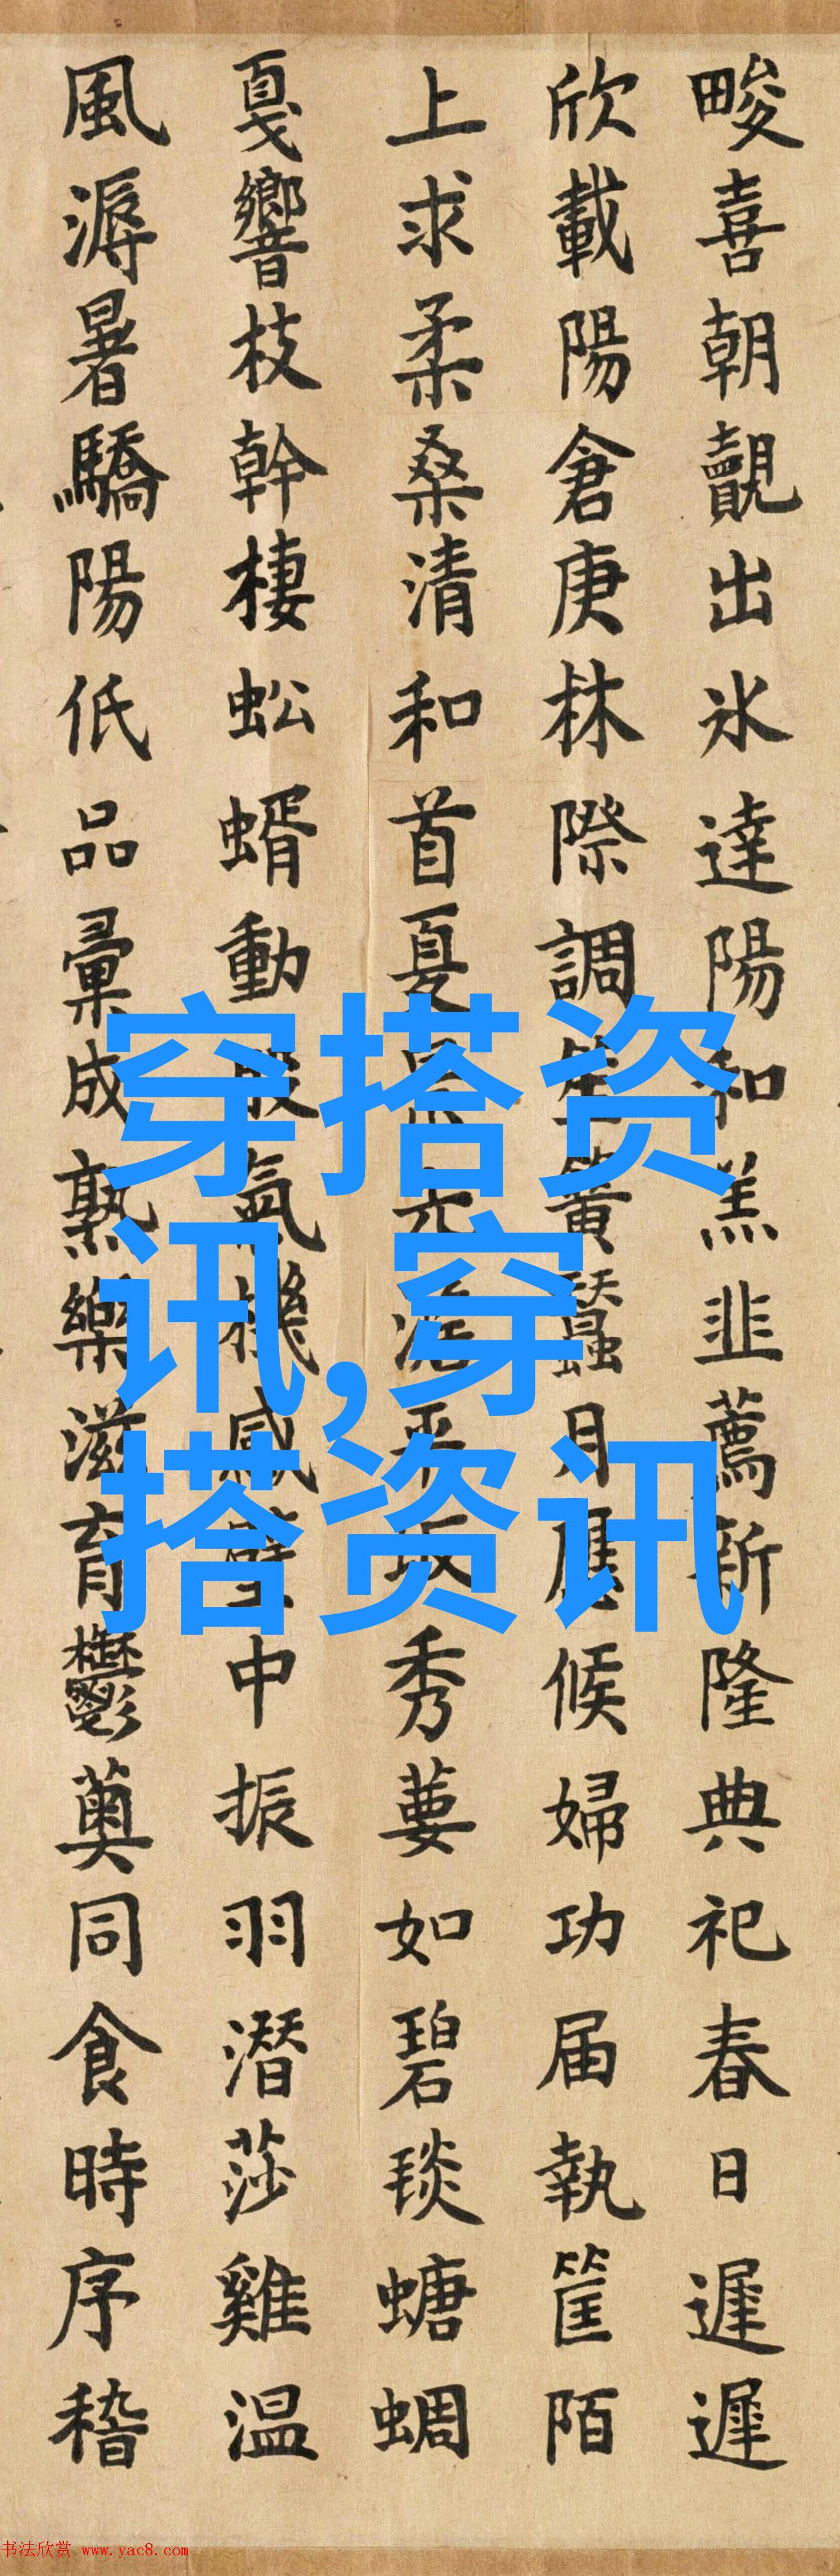 畯喜朝觀出氷達陽和羔韭薦新隆典祀春日遲遲
欣載陽倉庚林際調笙簧蠶月應候婦功届執筐陌
上求柔桑清和首夏平秀葽如碧琰螗蜩
戛響枝幹棲蚣蝑動股氣機感中振羽潛莎雞温
風溽暑驕陽低品彙成熟樂滋育鬱薁同食時序稽
穿搭资
讯,穿
搭资讯
书法欣赏 www.yac8.com